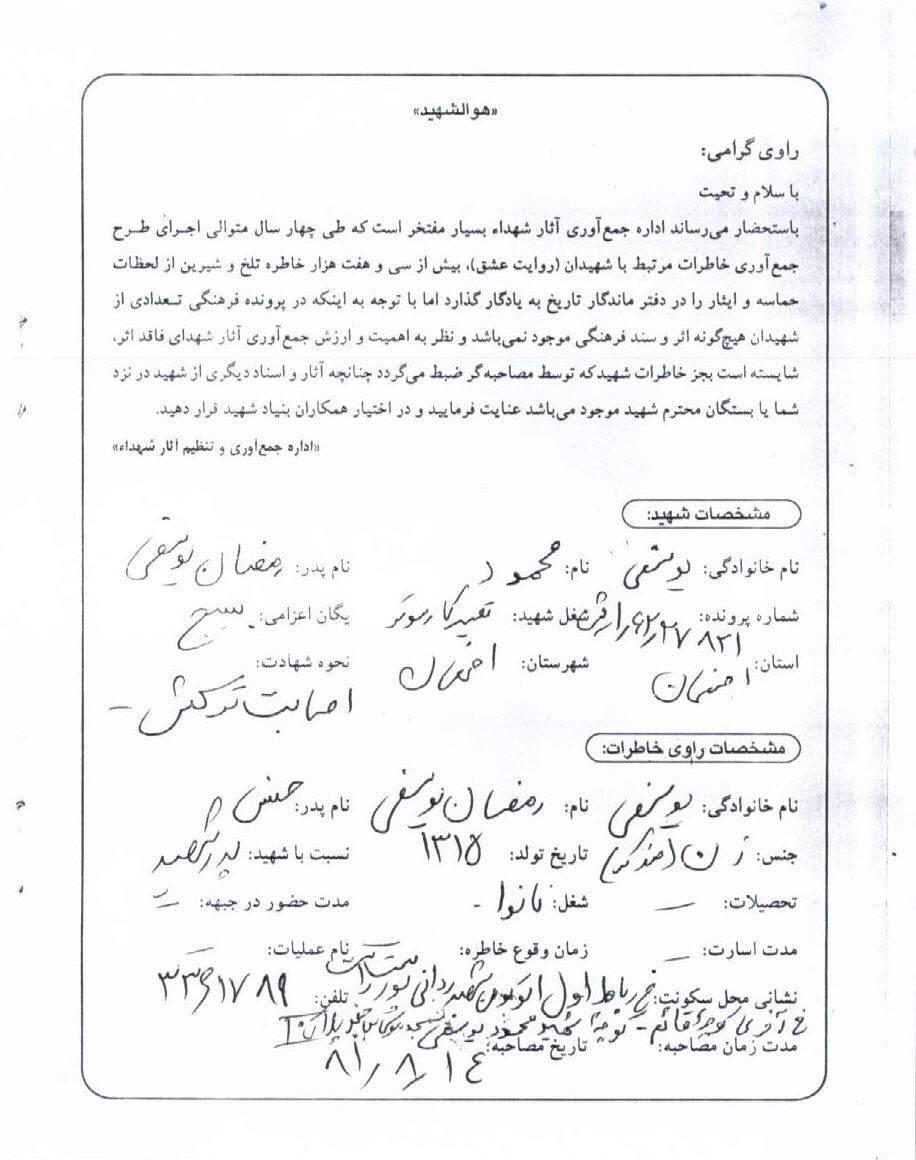 «هو الشهید»
راوی گرامی:
با سلام و تحیت
باستحضار می‌رساند اداره جمع‌آوری آثار شهداء بسیار مفتخر است که طی چهار سال متوالی اجرای طرح
جمع‌آوری خاطرات مرتبط با شهیدان (روایت عشق)، بیش از سی و هفت هزار خاطره تلخ و شیرین از لحظات
حماسه و ایثار را در دفتر ماندگار تاریخ به یادگار گذارد اما با توجه به اینکه در پرونده فرهنگی تعدادی از
شهیدان هیچ‌گونه اثر و سند فرهنگی موجود نمی‌باشد و نظر به اهمیت و ارزش جمع‌آوری آثار شهدای فاقد اثر،
شایسته است بجز خاطرات شهید که توسط مصاحبه‌گر ضبط می‌گردد چنانچه آثار و اسناد دیگری از شهید در نزد
شما یا بستگان محترم شهید موجود می‌باشد عنایت فرمایید و در اختیار همکاران بنیاد شهید قرار دهید.
«اداره جمع‌آوری و تنظیم آثار شهداء»
مشخصات شهید:
نام خانوادگی: یوسفی نام: محمود نام پدر: رمضان یوسفی
شماره پرونده: شغل شهید: تعمیرکار موتور یگان اعزامی: بسیج
استان: اصفهان شهرستان: اصفهان نحوه شهادت:
اصابت ترکش -
مشخصات راوی خاطرات:
نام خانوادگی: یوسفی نام: رمضان یوسفی نام پدر: حسن
جنس: تاریخ تولد: ۱۳۱۵ نسبت با شهید: پدر شهید
تحصیلات: — شغل: نانوا - مدت حضور در جبهه: —
مدت اسارت: — زمان وقوع خاطره: نام عملیات: —
نشانی محل سکونت: خ رباط اول تلفن: ۳۳۶۱۷۸۹
کوچه قائم - کوچه شهید محمود یوسفی
مدت زمان مصاحبه: تاریخ مصاحبه:
۸۱/۸/۱۴